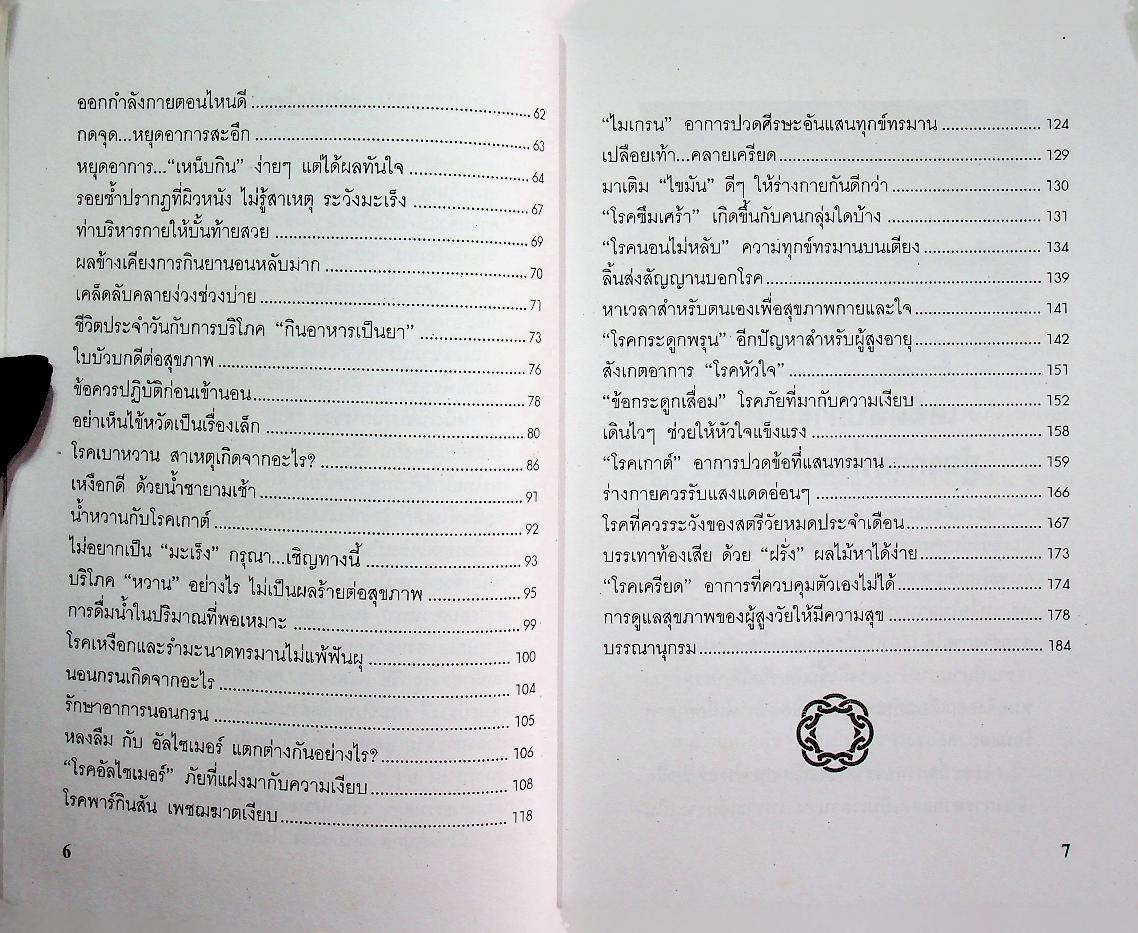 ออกกำลังกายตอนไหนดี ........................................ 62
กดจุด...หยุดอาการสะอึก ........................................ 63
หยุดอาการ...“เหน็บกิน” ง่ายๆ แต่ได้ผลทันใจ .................... 64
รอยช้ำปรากฏที่ผิวหนัง ไม่รู้สาเหตุ ระวังมะเร็ง .................... 67
ท่าบริหารกายให้บั้นท้ายสวย ........................................ 69
ผลข้างเคียงการกินยานอนหลับมาก .............................. 70
เคล็ดลับคลายง่วงช่วงบ่าย ........................................ 71
ชีวิตประจำวันกับการบริโภค “กินอาหารเป็นยา” .................... 73
ใบบัวบกดีต่อสุขภาพ ........................................ 76
ข้อควรปฏิบัติก่อนเข้านอน ........................................ 78
อย่าเห็นไข้หวัดเป็นเรื่องเล็ก ........................................ 80
โรคเบาหวาน สาเหตุเกิดจากอะไร? .............................. 86
เหงือกดี ด้วยน้ำชายามเช้า ........................................ 91
น้ำหวานกับโรคเกาต์ ........................................ 92
ไม่อยากเป็น “มะเร็ง” กรุณา...เชิญทางนี้ .................... 93
บริโภค “หวาน” อย่างไร ไม่เป็นผลร้ายต่อสุขภาพ .................... 95
การดื่มน้ำในปริมาณที่พอเหมาะ .............................. 99
โรคเหงือกและรำมะนาดทรมานไม่แพ้ฟันผุ .................... 100
นอนกรนเกิดจากอะไร ........................................ 104
รักษาอาการนอนกรน ........................................ 105
หลงลืม กับ อัลไซเมอร์ แตกต่างกันอย่างไร? .................... 106
“โรคอัลไซเมอร์” ภัยที่แฝงมากับความเงียบ .................... 108
โรคพาร์กินสัน เพชฌฆาตเงียบ .............................. 118
6
“ไมเกรน” อาการปวดศีรษะอันแสนทุกข์ทรมาน .................... 124
เปลือยเท้า...คลายเครียด ........................................ 129
มาเติม “ไขมัน” ดีๆ ให้ร่างกายกันดีกว่า .................... 130
“โรคซึมเศร้า” เกิดขึ้นกับคนกลุ่มใดบ้าง .................... 131
“โรคนอนไม่หลับ” ความทุกข์ทรมานบนเตียง .................... 134
ลิ้นส่งสัญญานบอกโรค ........................................ 139
หาเวลาสำหรับตนเองเพื่อสุขภาพกายและใจ .................... 141
“โรคกระดูกพรุน” อีกปัญหาสำหรับผู้สูงอายุ .................... 142
สังเกตอาการ “โรคหัวใจ” .............................. 151
“ข้อกระดูกเสื่อม” โรคภัยที่มากับความเงียบ .................... 152
เดินไวๆ ช่วยให้หัวใจแข็งแรง .............................. 158
“โรคเกาต์” อาการปวดข้อที่แสนทรมาน .................... 159
ร่างกายควรรับแสงแดดอ่อนๆ .............................. 166
โรคที่ควรระวังของสตรีวัยหมดประจำเดือน .................... 167
บรรเทาท้องเสีย ด้วย “ฝรั่ง” ผลไม้หาได้ง่าย .................... 173
“โรคเครียด” อาการที่ควบคุมตัวเองไม่ได้ .................... 174
การดูแลสุขภาพของผู้สูงวัยให้มีความสุข .................... 178
บรรณานุกรม ........................................ 184
7